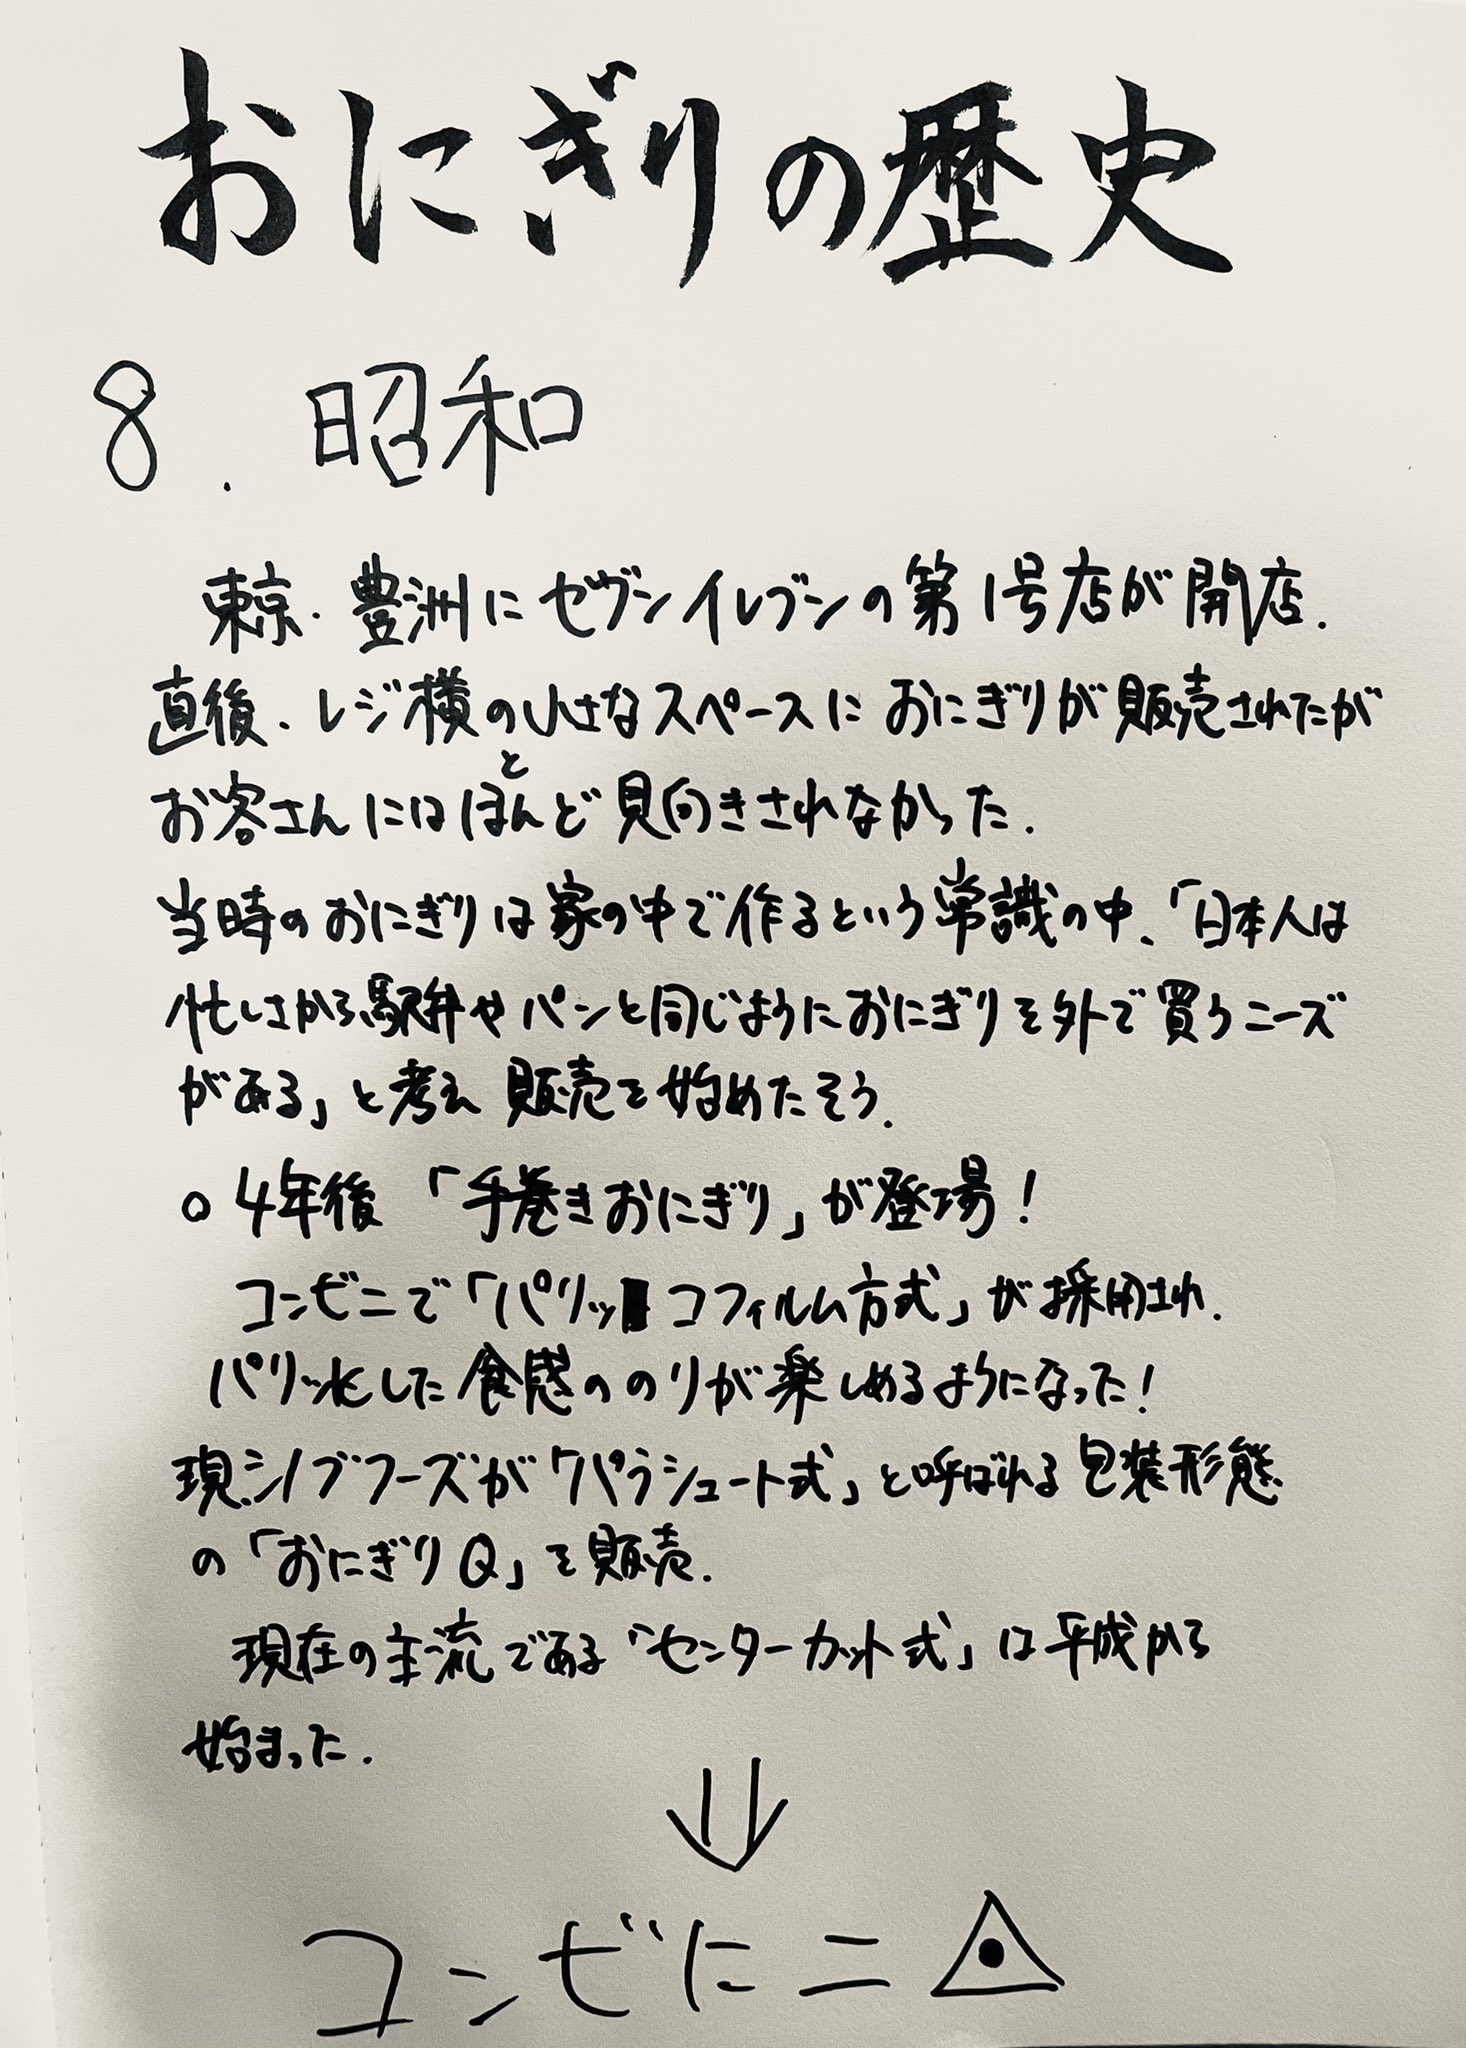 おにぎりの歴史
8. 昭和
東京・豊洲にセヴンイレブンの第1号店が開店.
直後、レジ横の小さなスペースにおにぎりが販売されたが
お客さんにはほとんど見向きされなかった.
当時のおにぎりは家の中で作るという常識の中、「日本人は
忙しさから駅弁やパンと同じようにおにぎりを外で買うニーズ
がある」と考え販売を始めたそう.
○ 4年後「手巻きおにぎり」が登場!
コンビニで「パリッコフィルム方式」が採用され.
パリッとした食感ののりが楽しめるようになった!
現.シノブフーズが「パラシュート式」と呼ばれる包装形態
の「おにぎりQ」を販売.
現在の主流である「センターカット式」は平成から
始まった.
⇓
コンビに二